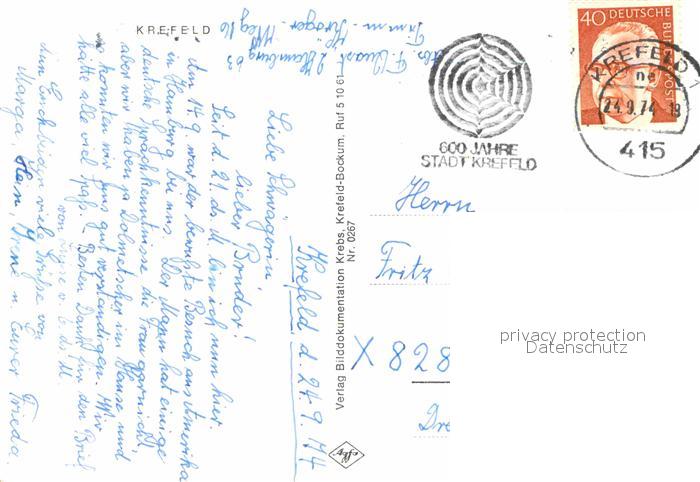 KREFELD
Krefeld d. 24.9.74
Liebe Schwägerin,
lieber Bruder!
Seit d. 21. ds. M. bin ich nun hier.
Am 14.9. war der berühmte Besuch aus Amerika
in Hamburg bei uns. Der Mann hat einige
deutsche Sprachkenntnisse die Frau gar nicht
aber wir haben ja Dolmetscher im Hause und
konnten wir uns gut verständigen. Wir
hatte alle viel Spaß. – Besten Dank für den Brief
von
Euch Lieben viele Grüße von
Marga, Irene u. Eurer Frieda.
2 Hamburg 63
Verlag Bilddokumentation Krebs, Krefeld-Bockum, Ruf 5 10 61
Nr. 0267
600 JAHRE
STADT KREFELD
40 DEUTSCHE
BUNDESPOST
KREFELD 1
ne
24.9.74-18
415
Herrn
Fritz
X 828
Dre
privacy protection
Datenschutz